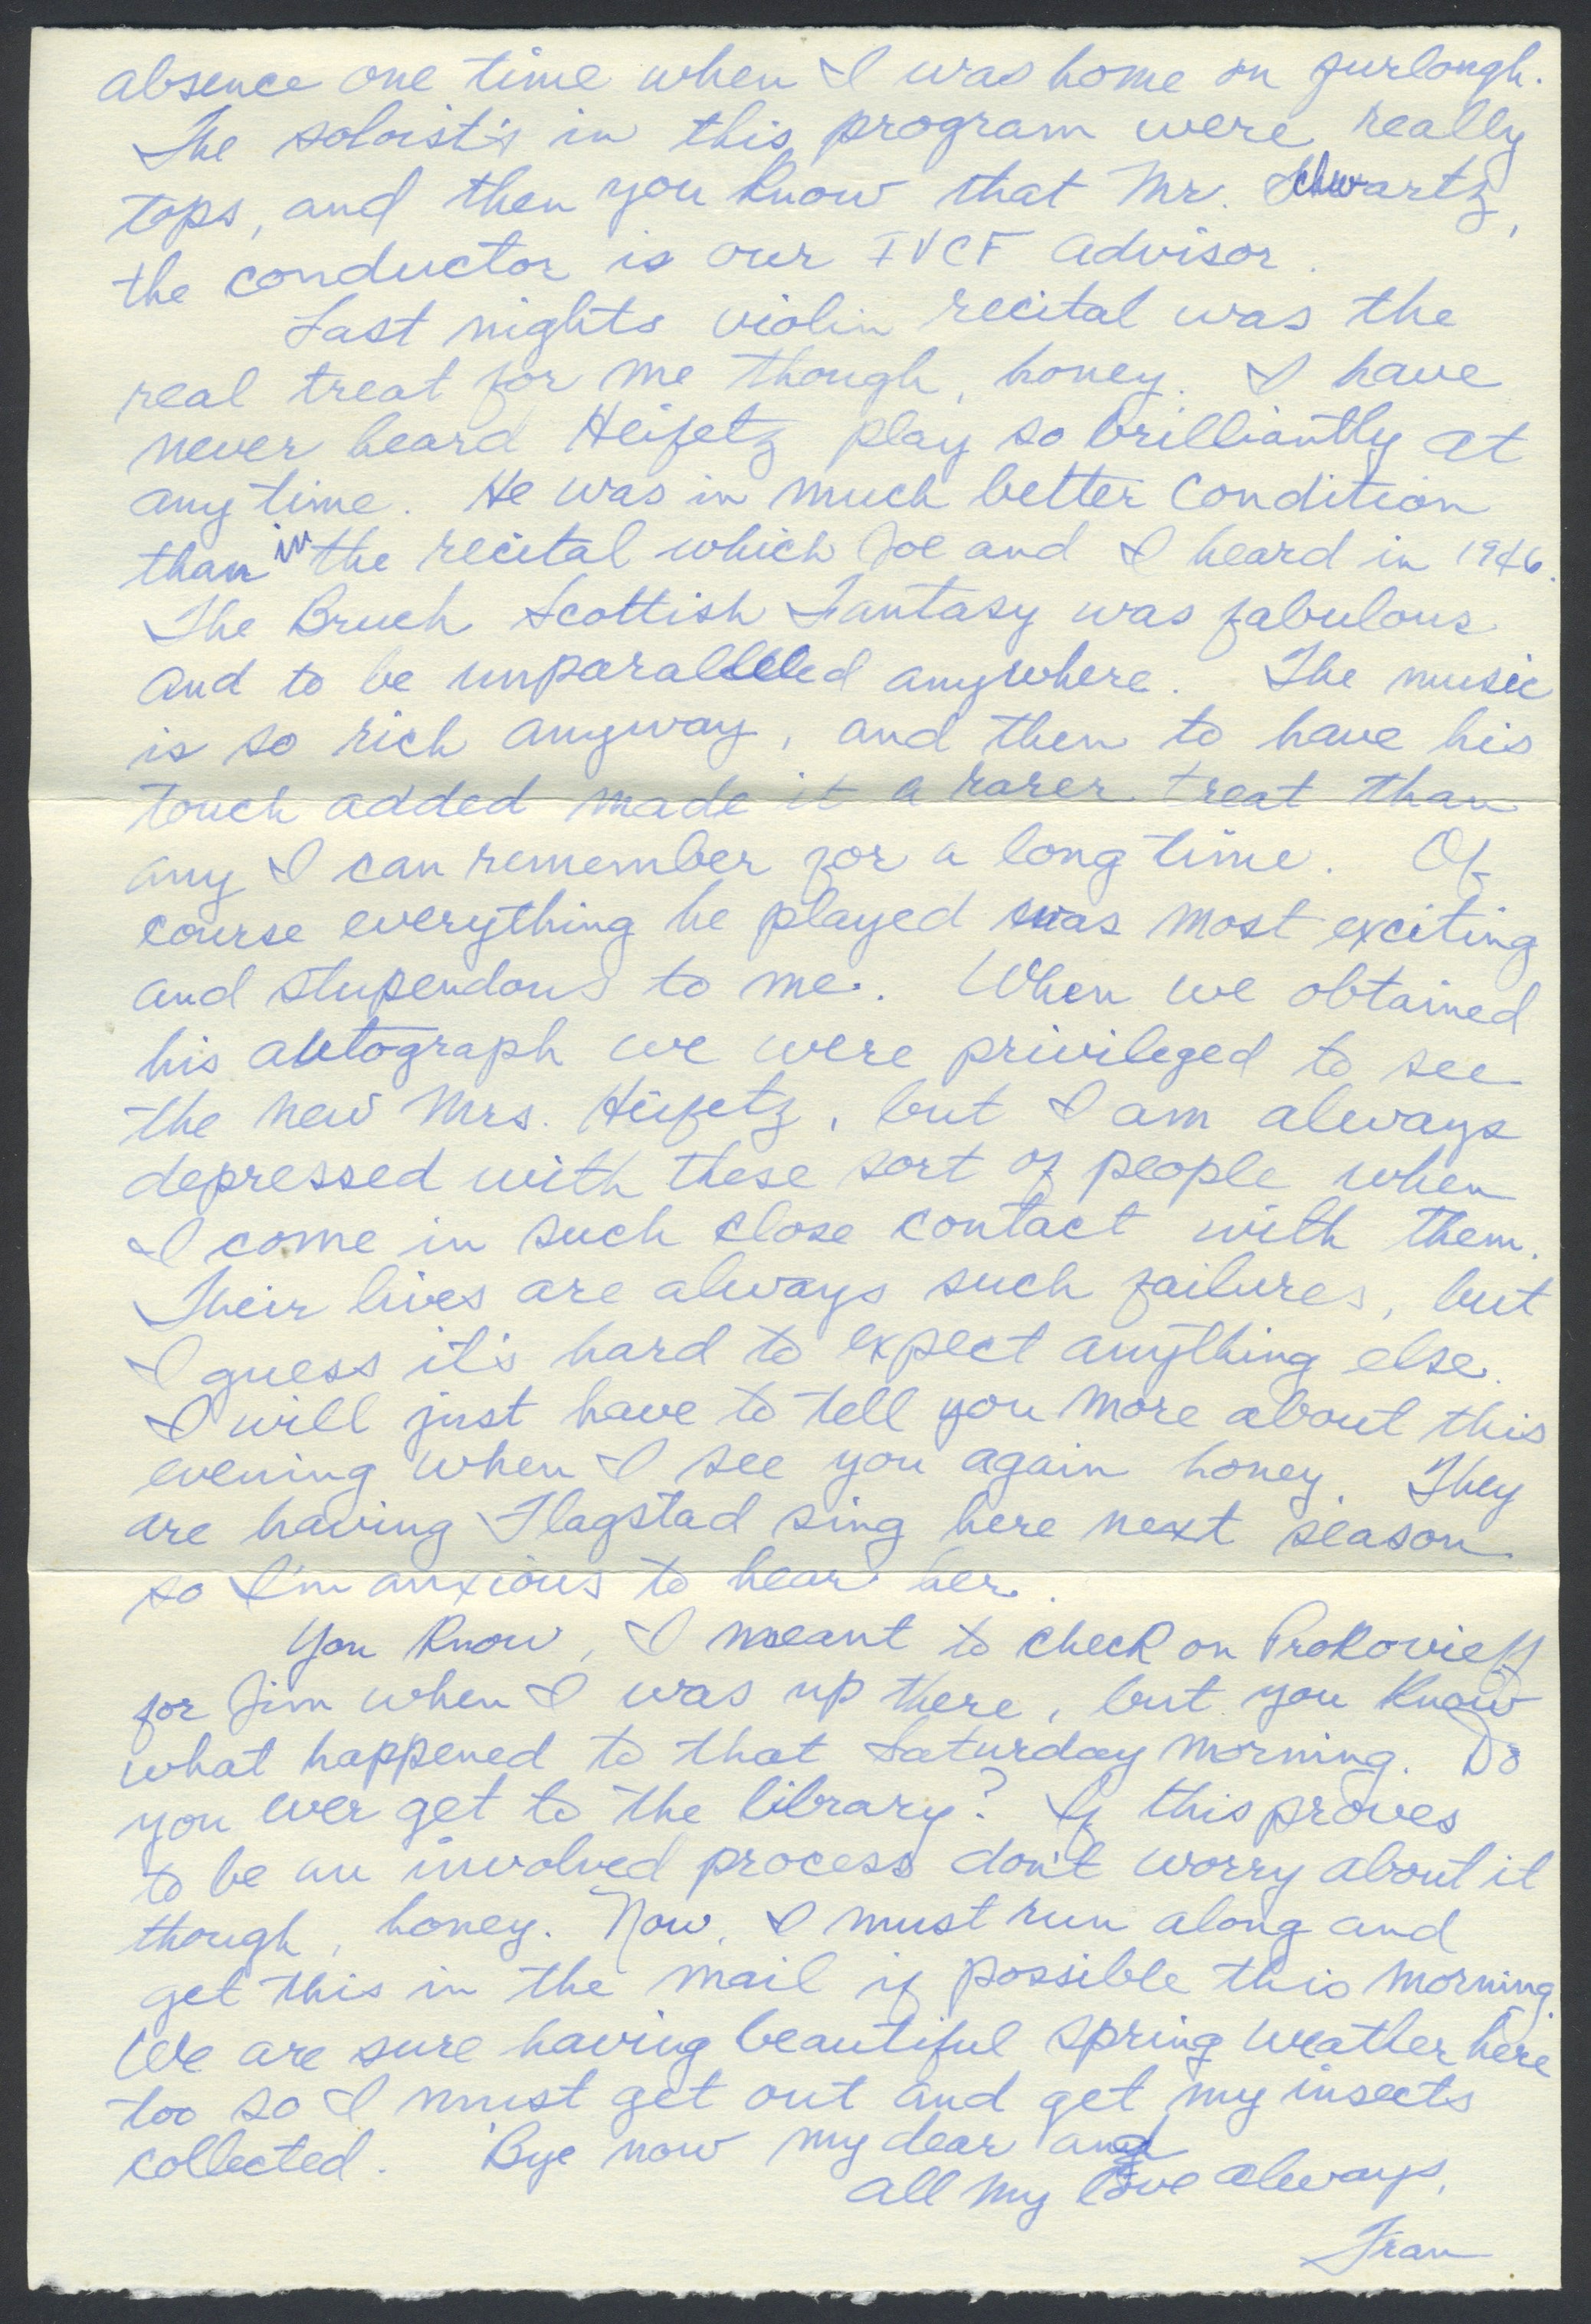 absence one time when I was home on furlough.
The soloist's in this program were really
tops, and then you know that Mr. Schwartz,
the conductor is our IVCF advisor.
Last nights violin recital was the
real treat for me though, honey. I have
never heard Heifetz play so brilliantly at
any time. He was in much better condition
than in the recital which Joe and I heard in 1946.
The Bruch Scottish Fantasy was fabulous
and to be unparalleled anywhere. The music
is so rich anyway, and then to have his
touch added made it a rarer treat than
any I can remember for a long time. Of
course everything he played was most exciting
and stupendous to me. When we obtained
his autograph we were privileged to see
the new Mrs. Heifetz, but I am always
depressed with these sort of people when
I come in such close contact with them.
Their lives are always such failures, but
I guess it's hard to expect anything else.
I will just have to tell you more about this
evening when I see you again honey. They
are having Flagstad sing here next season
so I'm anxious to hear her.
You know, I meant to check on Prokovieff
for Jim when I was up there, but you know
what happened to that Saturday morning. Do
you ever get to the library? If this proves
to be an involved process don't worry about it
though, honey. Now, I must run along and
get this in the mail if possible this morning.
We are sure having beautiful spring weather here
too so I must get out and get my insects
collected. 'Bye now my dear and
all my love always,
Fran